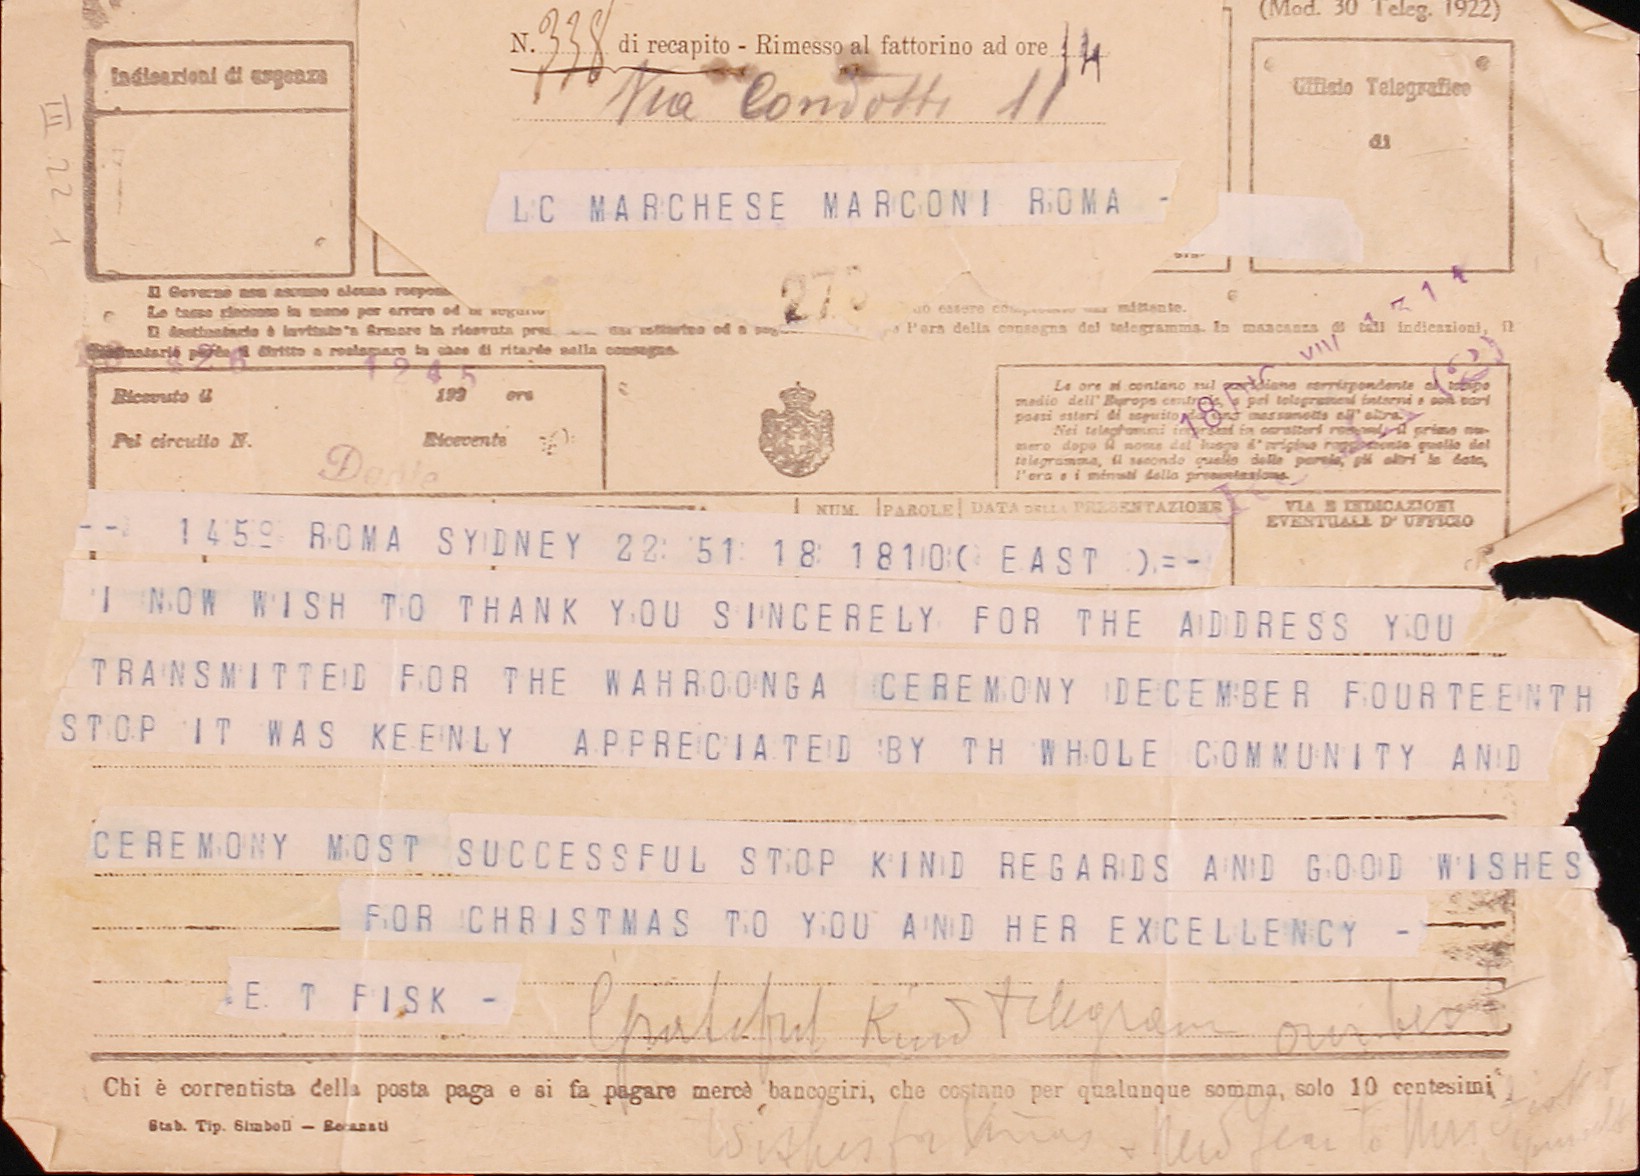 (Mod. 30 Teleg. 1922)
N. 338 di recapito - Rimesso al fattorino ad ore 14
Via Condotti 11
Indicazioni di urgenza
Ufficio Telegrafico
di
LC MARCHESE MARCONI ROMA -
27
Il Governo non assume alcuna respon
Le tasse riscosse in meno per errore od in seguito
mittente.
Il destinatario è invitato a firmare la ricevuta
l'ora della consegna del telegramma. In mancanza di tali indicazioni, il
destinatario perde il diritto a reclamare in caso di ritardo nella consegna.
1245
18 DIC VIII
Ricevuto il 192 ore
Pel circuito N. Ricevente
Le ore si contano sul meridiano corrispondente al tempo
medio dell'Europa centrale, e pei telegrammi interni e con vari
paesi esteri di seguito da una mezzanotte all'altra.
Nei telegrammi impressi in caratteri romani, il primo nu-
mero dopo il nome del luogo d'origine rappresenta quello del
telegramma, il secondo quello delle parole, gli altri la data,
l'ora e i minuti della presentazione.
NUM. PAROLE DATA DELLA PRESENTAZIONE VIA E INDICAZIONI
EVENTUALI D'UFFICIO
-- 145º ROMA SYDNEY 22 51 18 1810( EAST ).=-
I NOW WISH TO THANK YOU SINCERELY FOR THE ADDRESS YOU
TRANSMITTED FOR THE WAHROONGA CEREMONY DECEMBER FOURTEENTH
STOP IT WAS KEENLY APPRECIATED BY TH WHOLE COMMUNITY AND
CEREMONY MOST SUCCESSFUL STOP KIND REGARDS AND GOOD WISHES
FOR CHRISTMAS TO YOU AND HER EXCELLENCY -
E T FISK -
Grateful Kind telegram our best
Wishes for Xmas & New Year to Mrs Fisk
Chi è correntista della posta paga e si fa pagare mercè bancogiri, che costano per qualunque somma, solo 10 centesimi
Stab. Tip. Simboli — Recanati